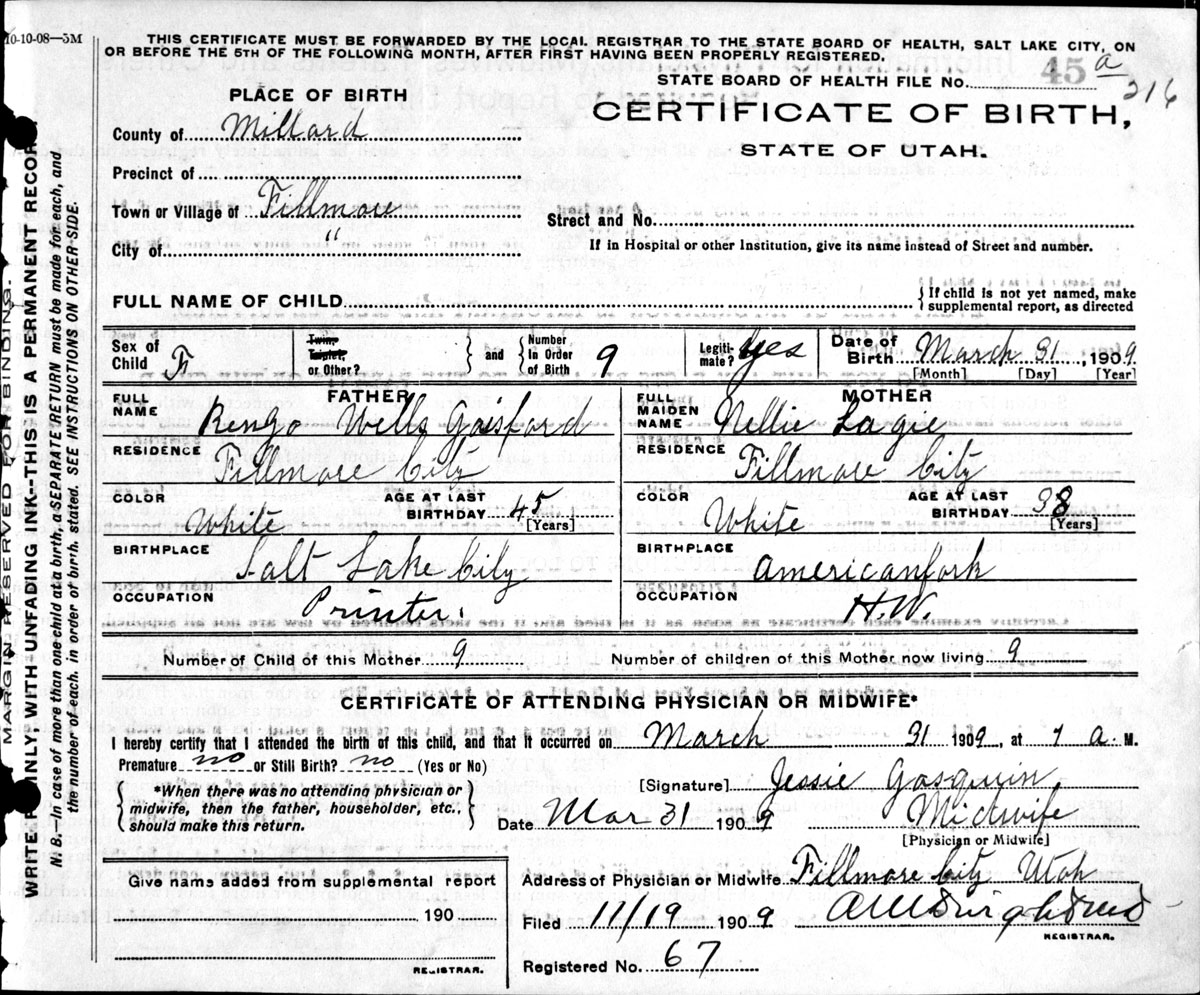 10-10-08—5M
THIS CERTIFICATE MUST BE FORWARDED BY THE LOCAL REGISTRAR TO THE STATE BOARD OF HEALTH, SALT LAKE CITY, ON
OR BEFORE THE 5TH OF THE FOLLOWING MONTH, AFTER FIRST HAVING BEEN PROPERLY REGISTERED.
STATE BOARD OF HEALTH FILE No. 45 a
316
PLACE OF BIRTH
CERTIFICATE OF BIRTH,
STATE OF UTAH.
County of Millard
Precinct of
Town or Village of Fillmore
Street and No.
City of "
If in Hospital or other Institution, give its name instead of Street and number.
FULL NAME OF CHILD
{ If child is not yet named, make
supplemental report, as directed
Sex of Child F
Twin, Triplet, or Other? } and { Number in Order of Birth 9
Legiti-mate? Yes
Date of Birth March 31, 1909
[Month] [Day] [Year]
FATHER
FULL NAME Rengo Wells Gaisford
RESIDENCE Fillmore City
COLOR White AGE AT LAST BIRTHDAY 45 [Years]
BIRTHPLACE Salt Lake City
OCCUPATION Printer.
MOTHER
FULL MAIDEN NAME Nellie Lagie
RESIDENCE Fillmore City
COLOR White AGE AT LAST BIRTHDAY 38 [Years]
BIRTHPLACE Americanfork
OCCUPATION H.W.
Number of Child of this Mother 9 Number of children of this Mother now living 9
CERTIFICATE OF ATTENDING PHYSICIAN OR MIDWIFE*
I hereby certify that I attended the birth of this child, and that it occurred on March 31 1909, at 7 a. M.
Premature no or Still Birth? no (Yes or No)
{ *When there was no attending physician or
midwife, then the father, householder, etc.,
should make this return. }
[Signature] Jessie Gasquin
Date Mar 31 1909 Midwife
[Physician or Midwife]
Give name added from supplemental report
190
REGISTRAR.
Address of Physician or Midwife Fillmore City Utah
Filed 11/19 1909
REGISTRAR.
Registered No. 67
MARGIN RESERVED FOR BINDING.
WRITE PLAINLY, WITH UNFADING INK--THIS IS A PERMANENT RECORD.
N. B.—In case of more than one child at a birth, a SEPARATE RETURN must be made for each, and
the number of each, in order of birth, stated. SEE INSTRUCTIONS ON OTHER SIDE.